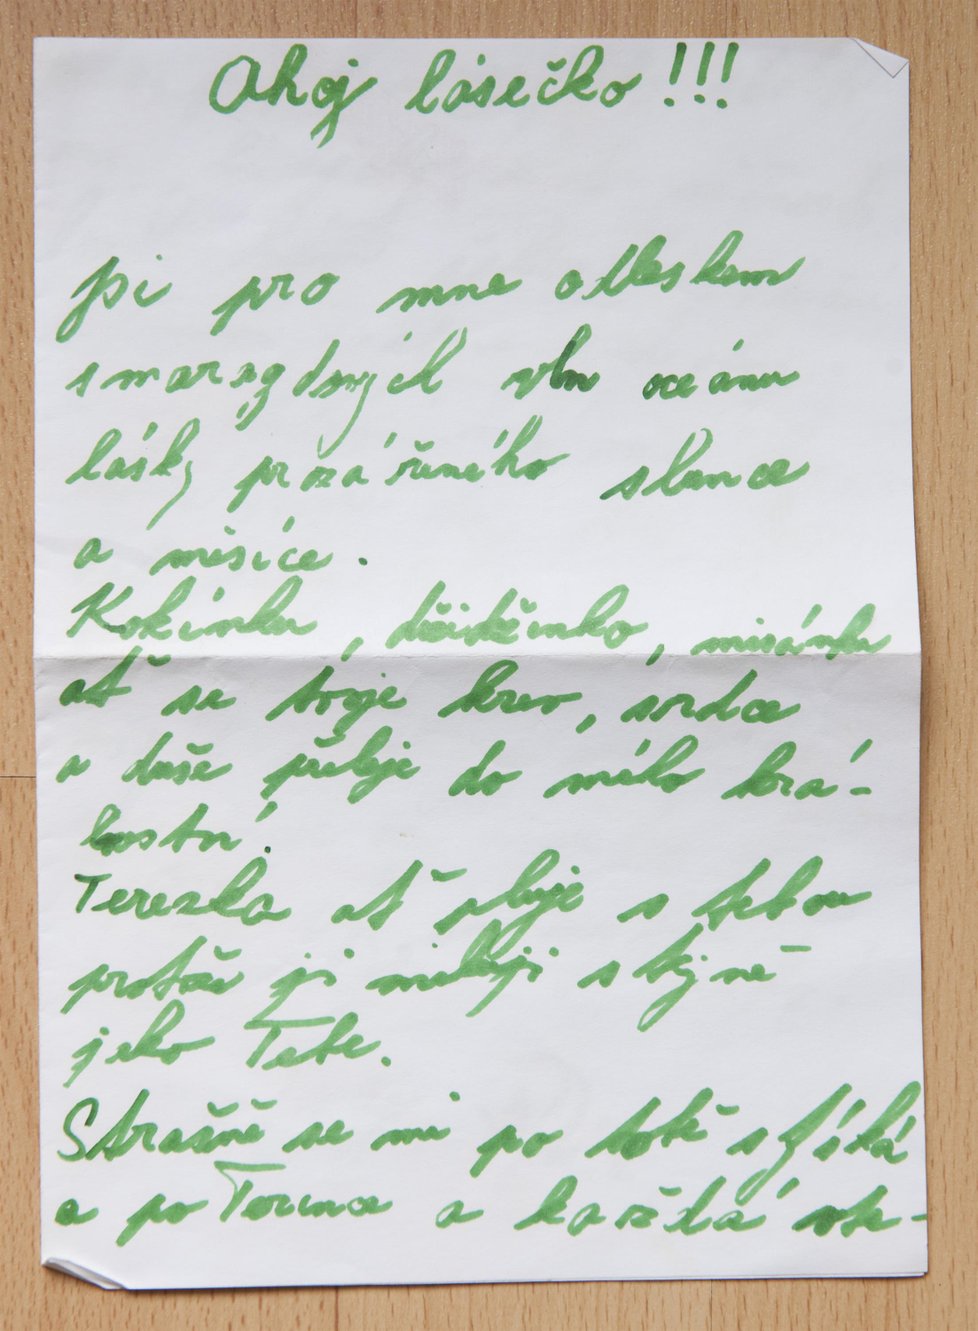 Ahoj lásečko!!!
jsi pro mne odleskem
smaragdových vln oceánu
lásky prozářeného slunce
a měsíce.
Kokínku, dětinko, misánku
ať se tvoje krev, srdce
a duše přelije do mého krá-
lovství!
Terezka ať pluje s tebou
protože ji miluji stejně
jako Tebe.
Strašně se mi po tobě stýská
a po Terince a každá vte-